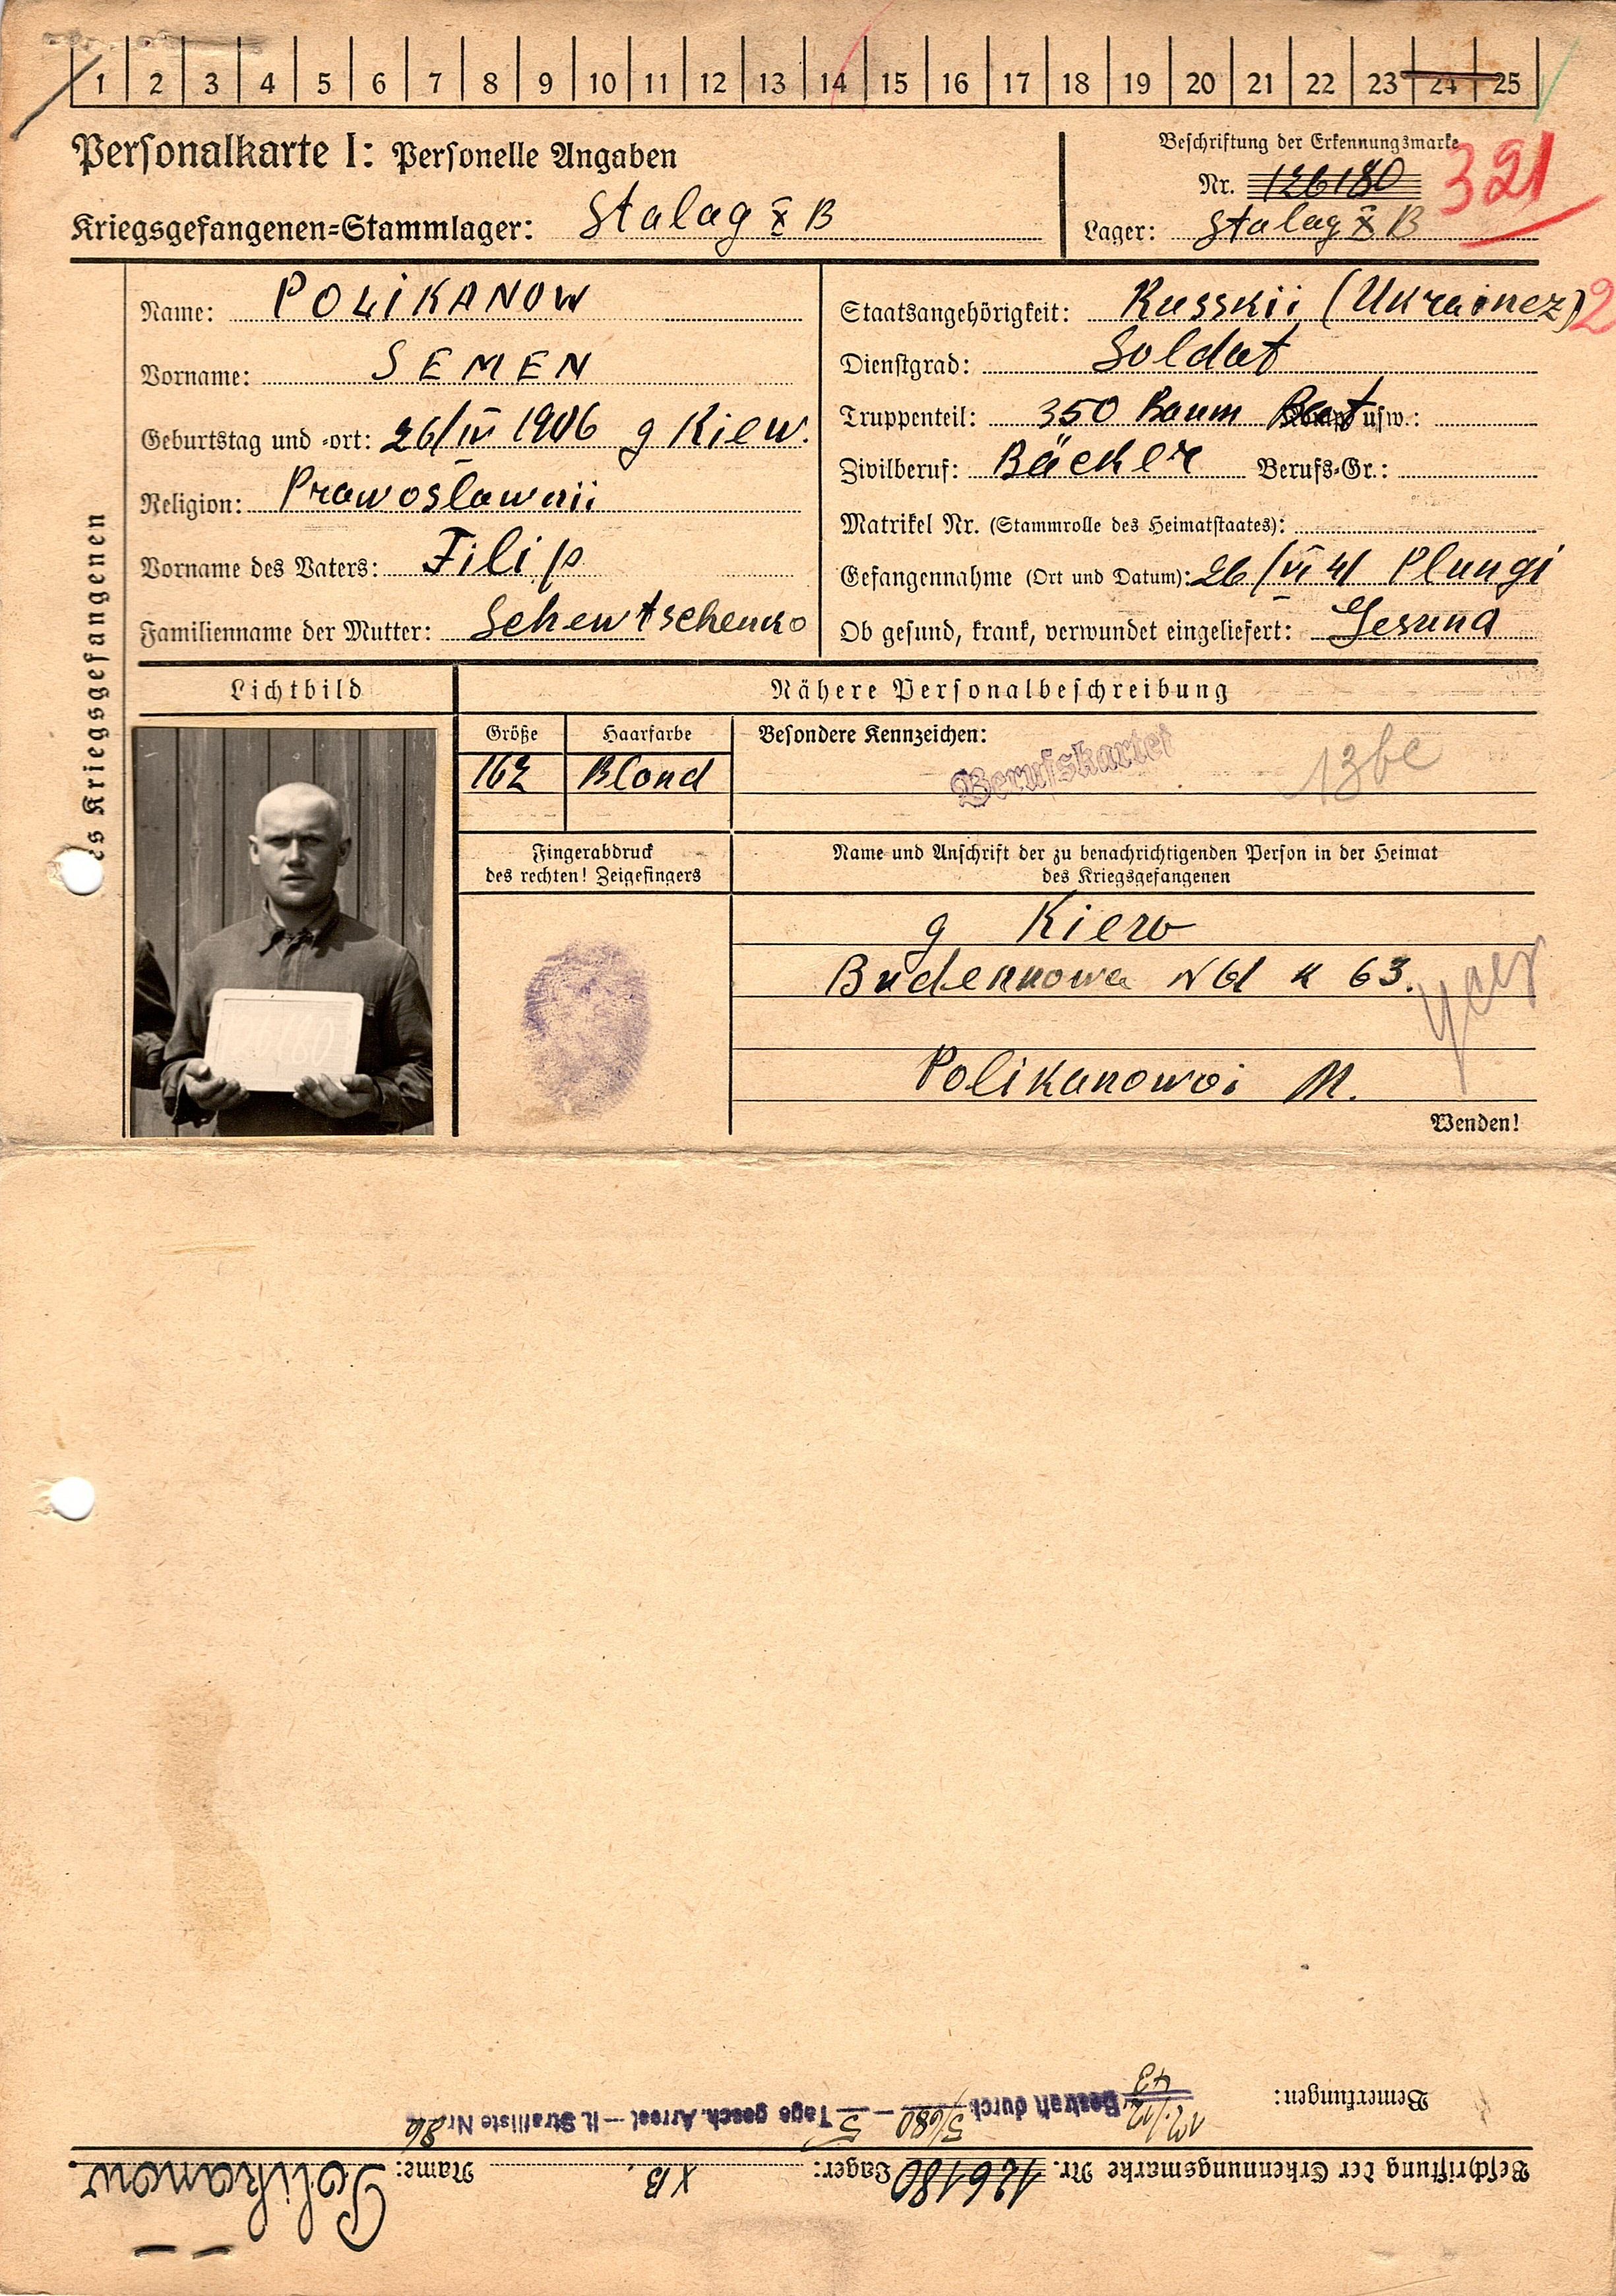 1 2 3 4 5 6 7 8 9 10 11 12 13 14 15 16 17 18 19 20 21 22 23 24 25
Personalkarte I: Personelle Angaben
Kriegsgefangenen-Stammlager: Stalag X B
Beschriftung der Erkennungsmarke
Nr. 126180
321
Lager: Stalag X B
Name: POLIKANOW
Vorname: SEMEN
Geburtstag und -ort: 26/IV 1906 g Kiew.
Religion: Prawoslawnii
Vorname des Vaters: Filip
Familienname der Mutter: Schewtschenko
Staatsangehörigkeit: Russkii (Ukrainez) 2
Dienstgrad: Soldat
Truppenteil: 350 Baum Bat usw.:
Zivilberuf: Bäcker Berufs-Gr.:
Matrikel Nr. (Stammrolle des Heimatstaates):
Gefangennahme (Ort und Datum): 26/VI 41 Plungi
Ob gesund, krank, verwundet eingeliefert: Gesund
es Kriegsgefangenen
Lichtbild
Nähere Personalbeschreibung
Größe
Haarfarbe
Besondere Kennzeichen:
162
Blond
Berufskartei
Fingerabdruck
des rechten! Zeigefingers
Name und Anschrift der zu benachrichtigenden Person in der Heimat
des Kriegsgefangenen
g Kiew
Budennowa N 61 k 63.
Polikanowoi M.
Wenden!
Beschriftung der Erkennungsmarke Nr. 126180 Lager: XB. Name: Polikanow
Bemerkungen:
17./12. 43 Bestraft durch 5/680 — 5 Tage gesch. Arrest — lt. Strafliste Nr. 86